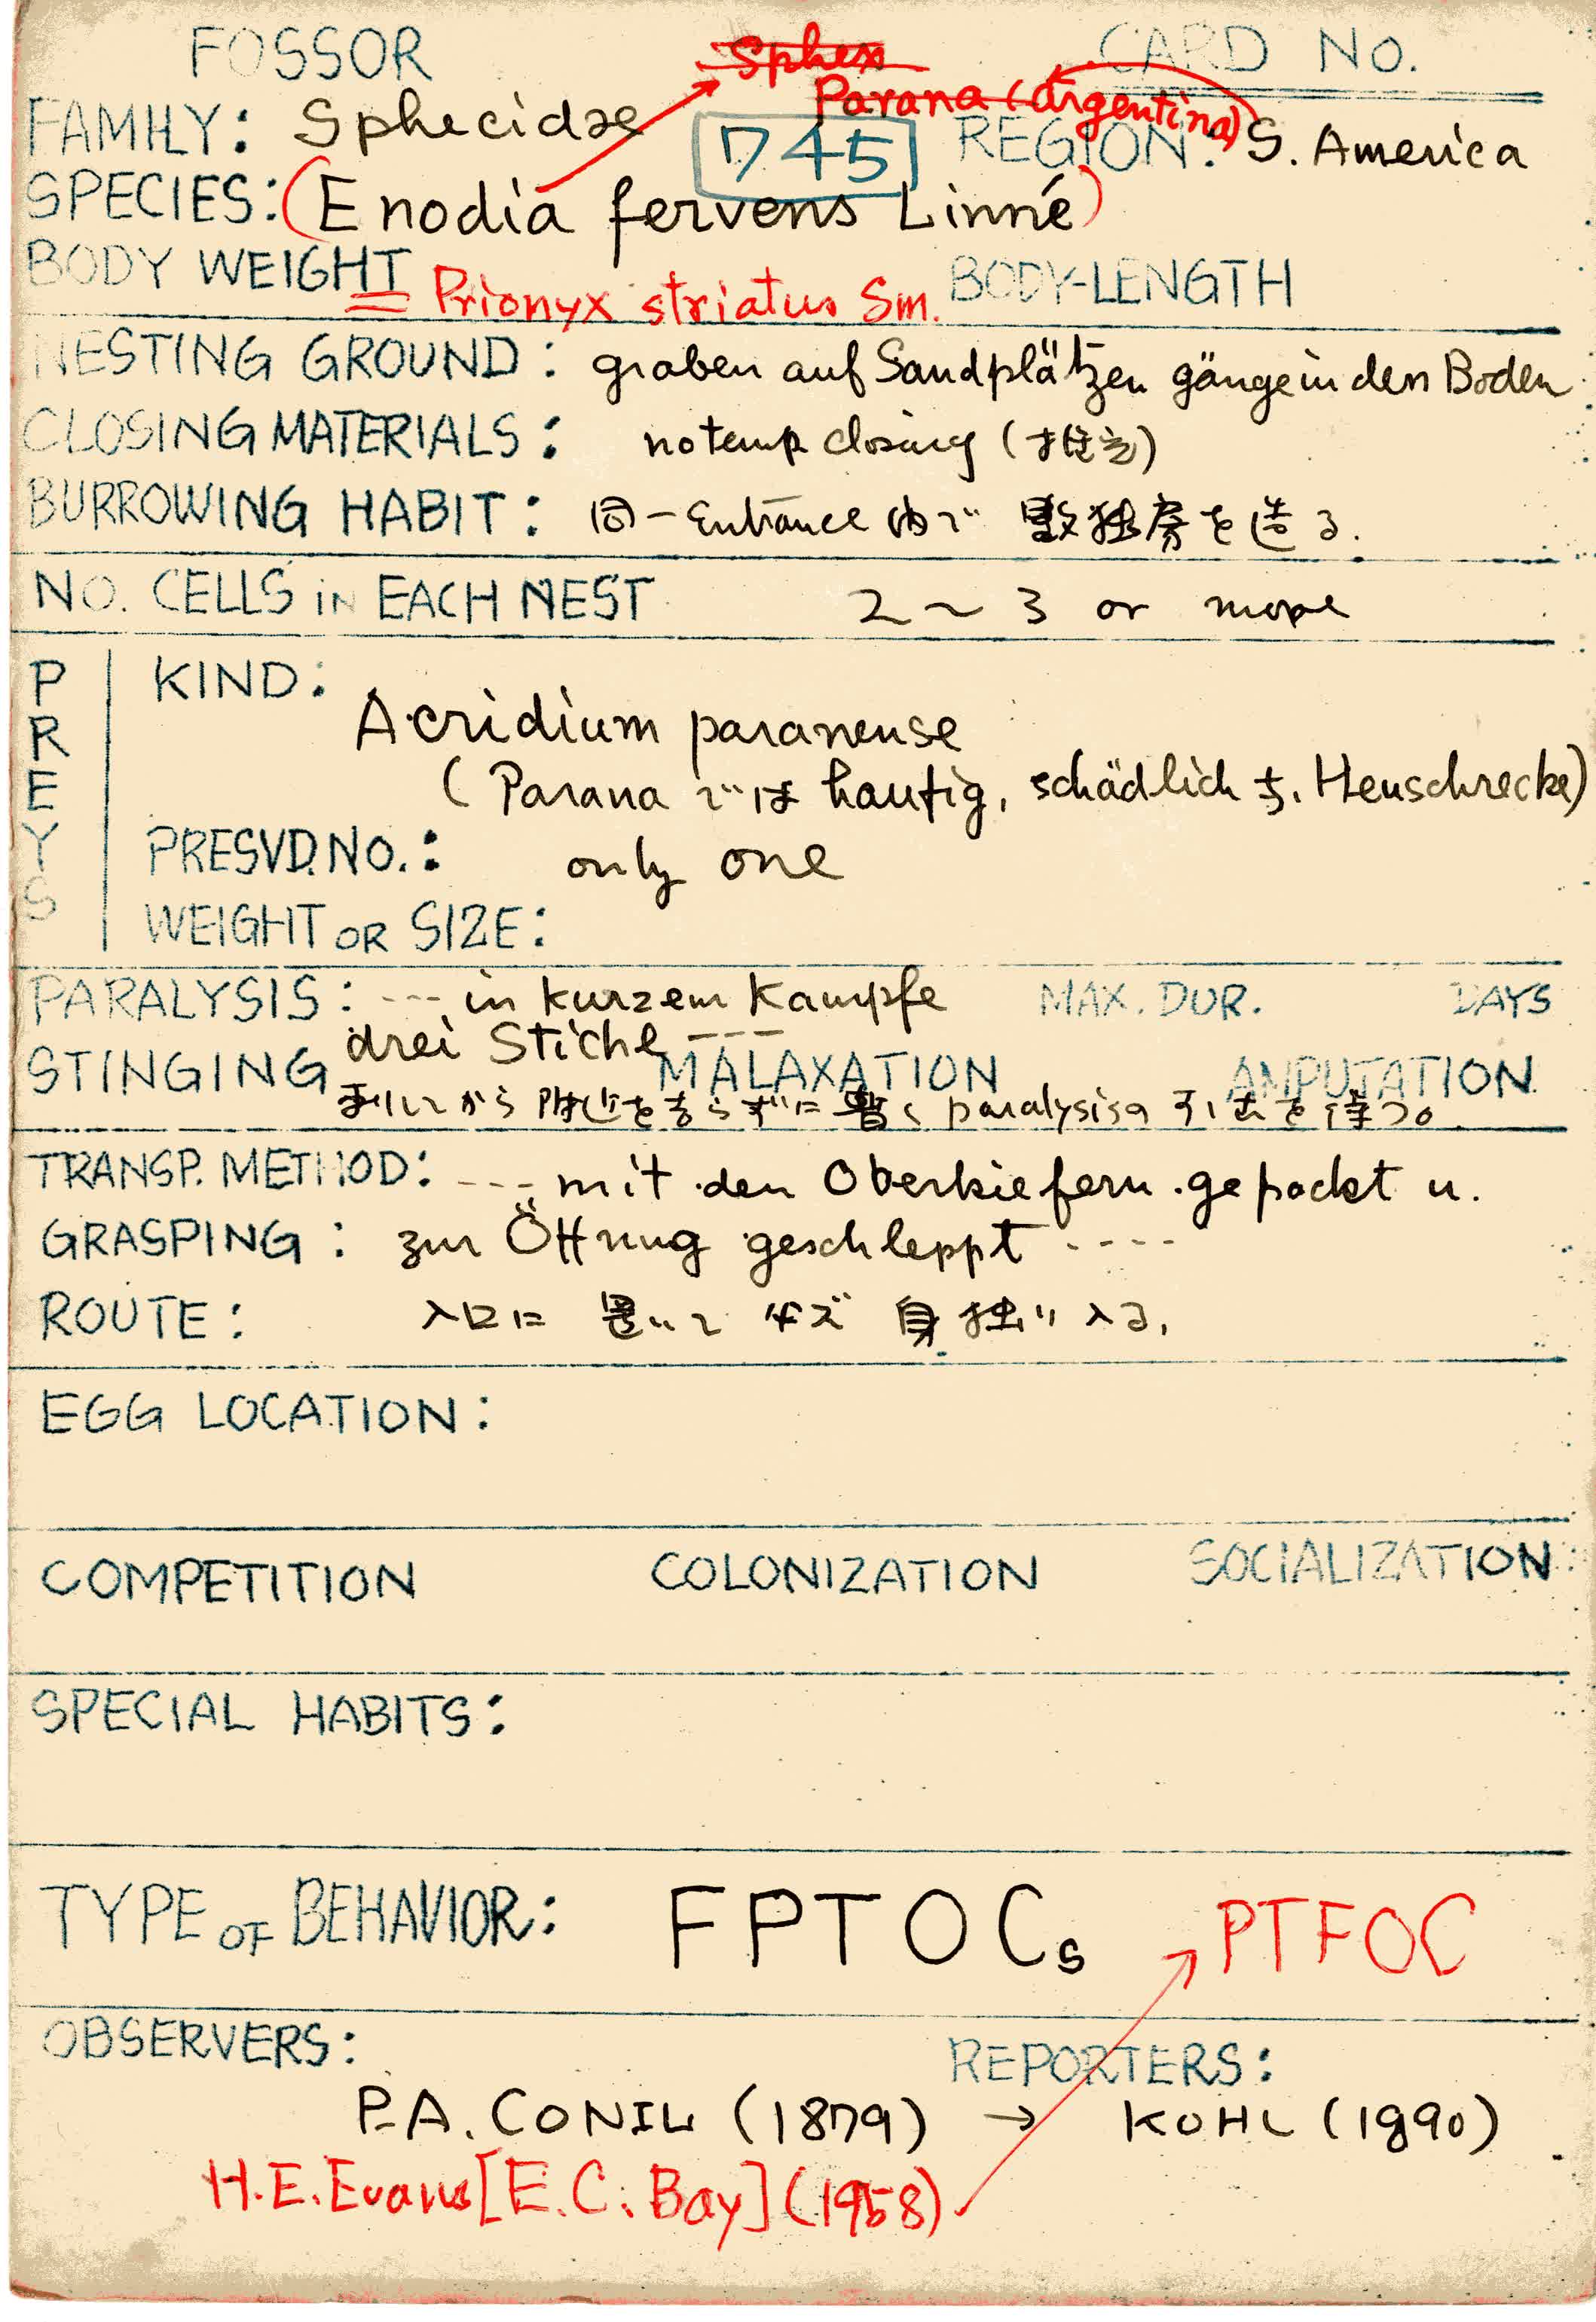 FOSSOR Sphex CARD No.
Parana (Argentina)
FAMILY: Sphecidae 745 REGION: S. America
SPECIES: (Enodia fervens Linné)
BODY WEIGHT = Prionyx striatus Sm. BODY-LENGTH
NESTING GROUND: graben auf Sandplätzen gänge in den Boden
CLOSING MATERIALS: no temp closing (推定)
BURROWING HABIT: 同一Entrance内で 数独房を造る.
NO. CELLS IN EACH NEST 2~3 or more
PREYS
KIND: Acridium paranense
(Paranaでは haufig, schädlich ナ. Heuschrecke)
PRESVD. NO.: only one
WEIGHT OR SIZE:
PARALYSIS: --- in kurzem Kampfe MAX. DUR. DAYS
drei Stiche ---
STINGING MALAXATION AMPUTATION
刺してから附近を去らずに暫く paralysisの を待つ。
TRANSP. METHOD: --- mit den Oberkiefern gepackt u.
GRASPING: zur Öffnung geschleppt ----
ROUTE: 入口に 置いて 先ズ 自身 独り 入る.
EGG LOCATION:
COMPETITION COLONIZATION SOCIALIZATION:
SPECIAL HABITS:
TYPE OF BEHAVIOR: FPTOCs PTFOC
OBSERVERS: REPORTERS:
P.A. CONIL (1879) → KOHL (1890)
H.E. Evans [E.C. Bay] (1958)